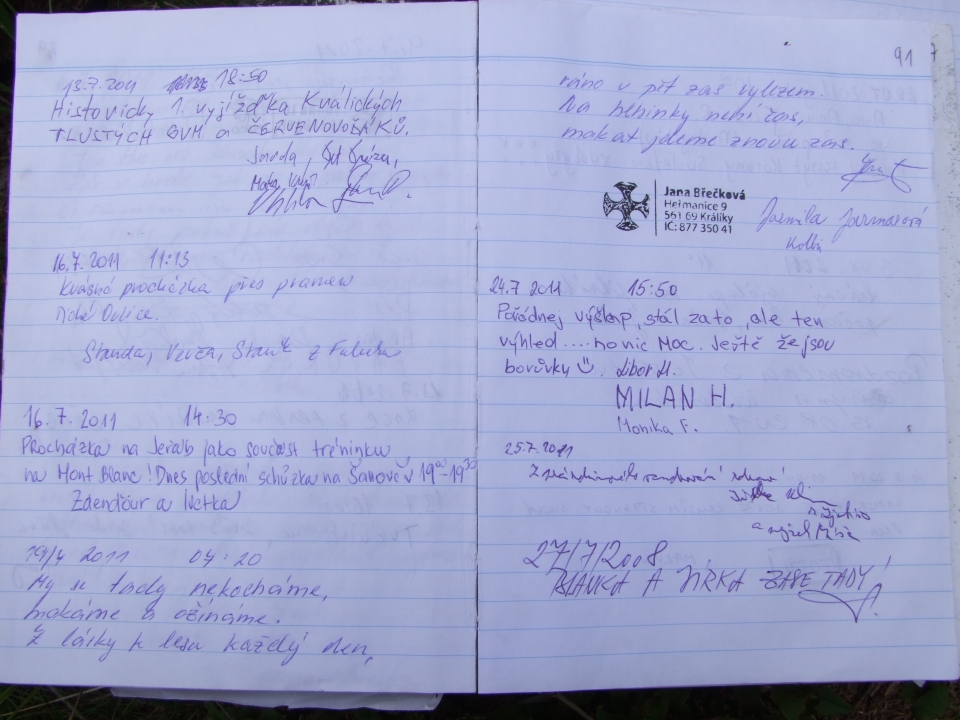 13.7.2011 18:50
Historicky 1. vyjížďka Králických
TLUSTÝCH GUM a ČERVENOVOŠÁKŮ.
Jarda,
16.7.2011 11:13
Krásná procházka přes pramen
Tiché Orlice.
Standa, Verča, Staník z
16.7.2011 14:30
Procházka na Jeřáb jako součást tréninku
na Mont Blanc! Dnes poslední schůzka na Šanově v 19⁰⁰-19³⁰
Zdenďour a Ivetka
19/4 2011 04:20
My se tady nekocháme,
makáme a ožínáme.
Z lásky k lesu každý den,
91
ráno v pět zas vylezem.
Na blbinky není čas,
makat jdeme znovu zas.
Jana Břečková
Heřmanice 9
561 69 Králíky
IČ: 877 350 41
Jarmila
24.7 2011 15:50
Pořádnej výšlap, stál za to, ale ten
výhled .... no nic moc. Ještě že jsou
borůvky. Libor H.
MILAN H.
Monika F.
25.7.2011
27/7/2008
BLANKA A JIRKA ZASE TADY!